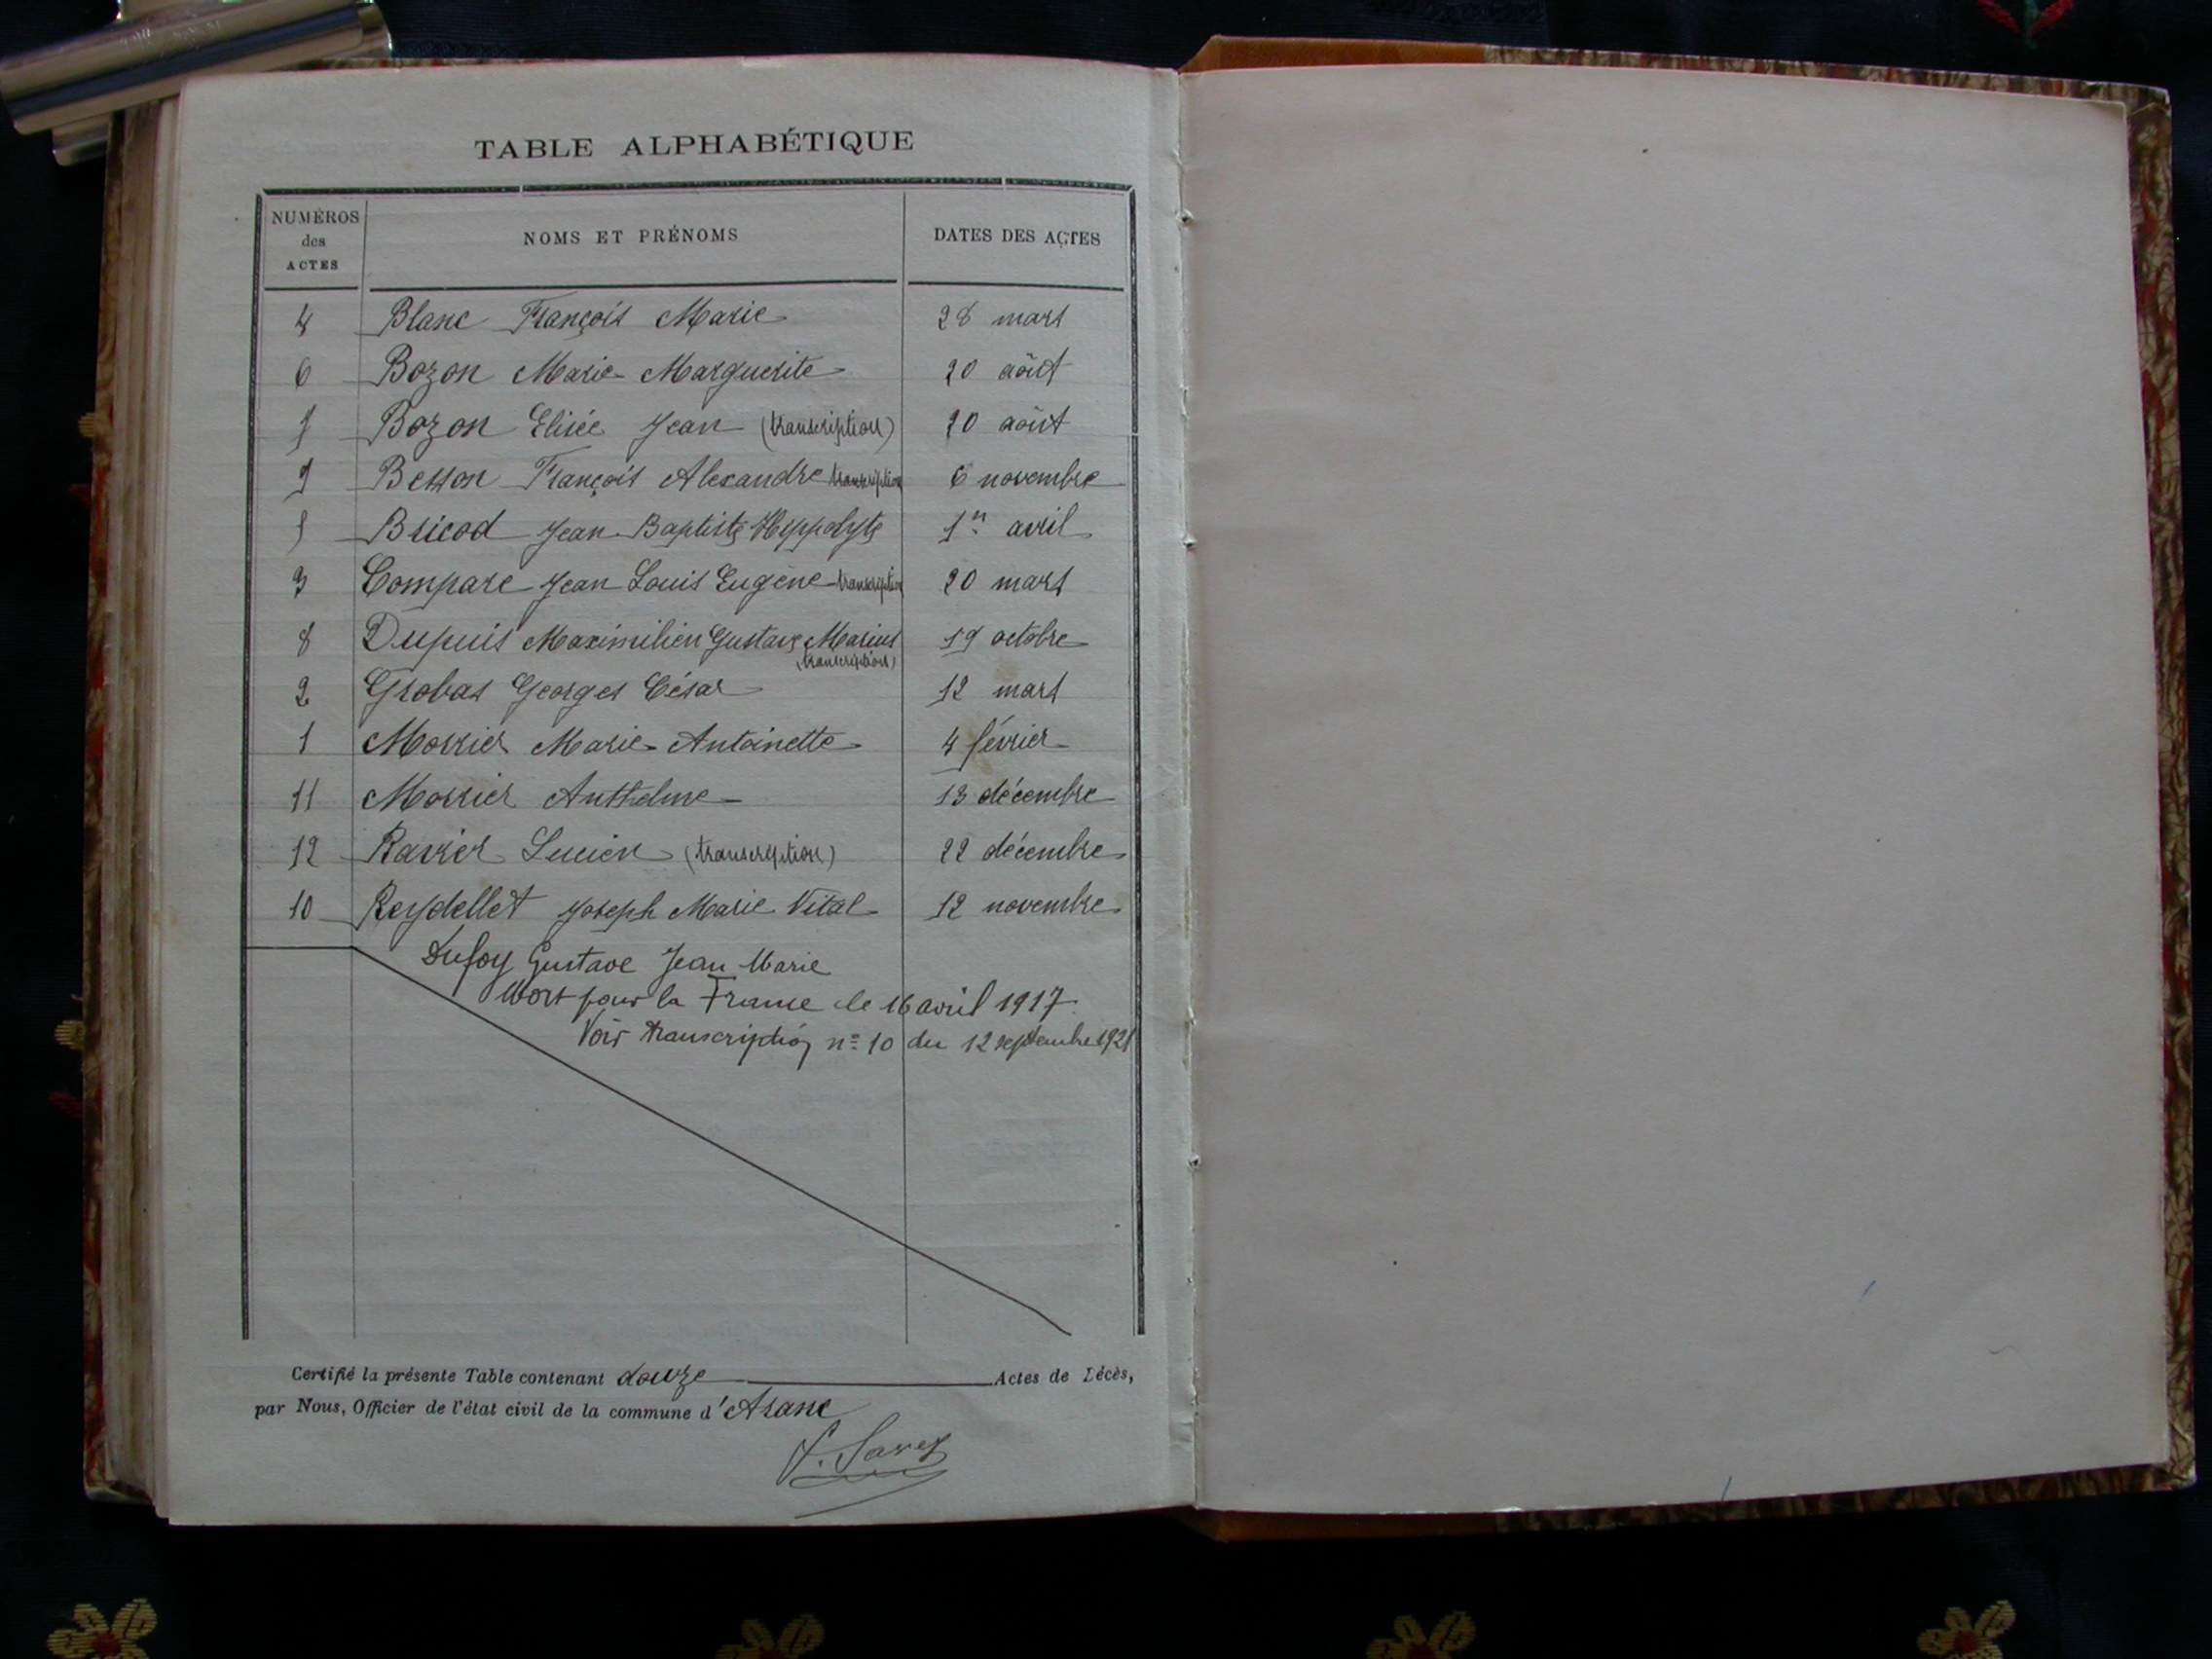 TABLE ALPHABÉTIQUE
NUMÉROS des ACTES NOMS ET PRÉNOMS DATES DES ACTES
4 Blanc François Marie 28 mars
6 Bozon Marie Marguerite 20 août
7 Bozon Elisée Jean (transcription) 20 août
9 Besson François Alexandre transcription 6 novembre
5 Bricod Jean-Baptiste Hippolyte 1er avril
3 Compare Jean Louis Eugène transcription 20 mars
8 Dupuis Maximilien Gustave Marius 19 octobre
(transcription)
2 Grobas Georges César 12 mars
1 Morrier Marie Antoinette 4 février
11 Morrier Anthelme 13 décembre
12 Ravier Lucien (transcription) 22 décembre
10 Reydellet Joseph Marie Vital 12 novembre
Dufoy Gustave Jean Marie
Mort pour la France le 16 avril 1917.
Voir transcription n° 10 du 12 septembre 1921
Certifié la présente Table contenant douze Actes de Décès,
par Nous, Officier de l'état civil de la commune d'Aranc